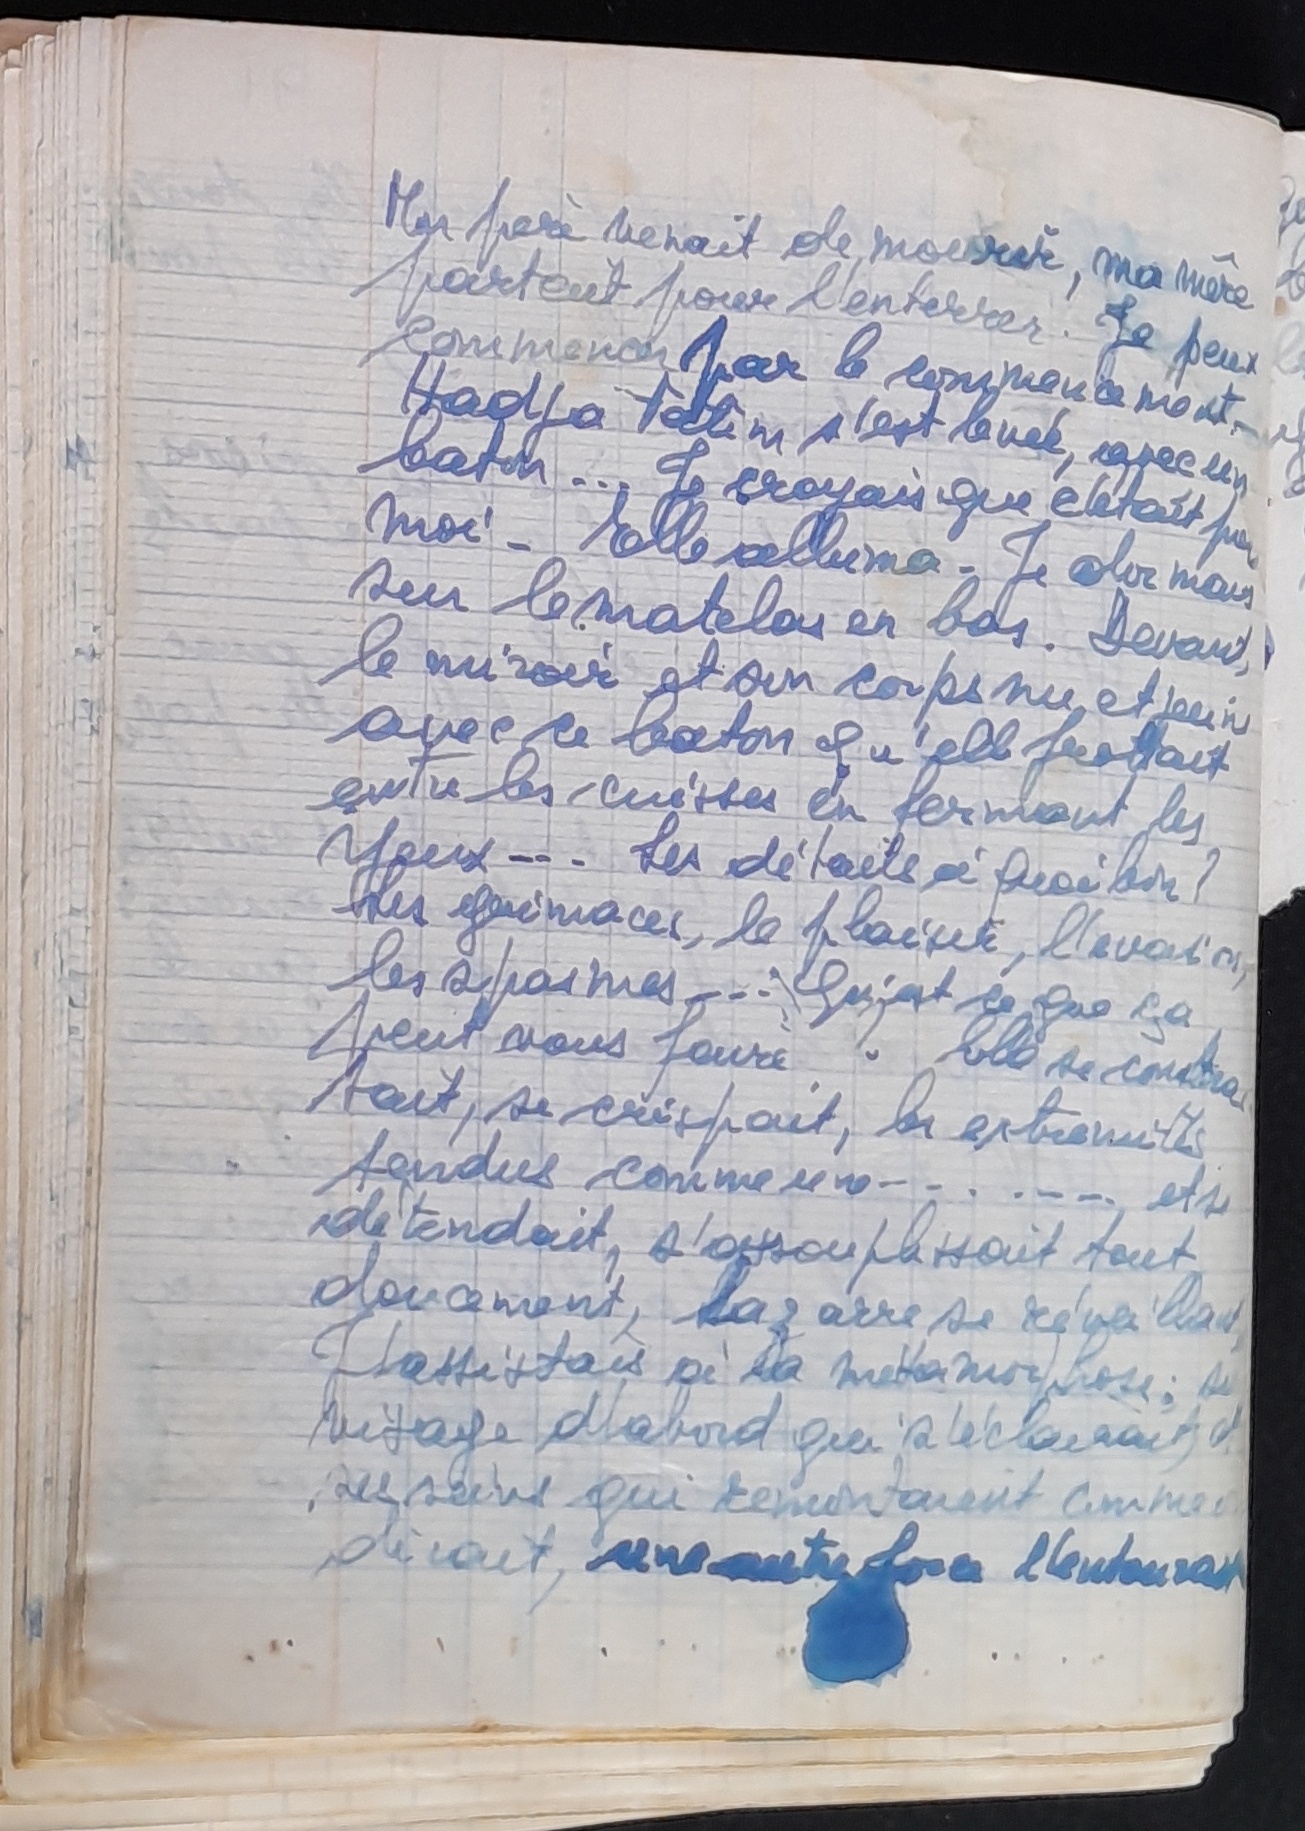 Mon père venait de mourir, ma mère
partait pour l'enterrer. Je peux
commencer par le commencement.
Hadja s'est levée, avec un
baton ... Je croyais que c'était pour
moi - Elle alluma - Je dormais
sur le matelas en bas. Devant
le miroir et son corps nu, et puis
avec ce baton qu'elle frottait
entre les cuisses en fermant les
yeux --- Les détails à quoi bon?
Les grimaces, le plaisir, l'évasion,
les spasmes ---. Qu'est ce que ça
peut vous faire . Elle se contrac
tait, se crispait, les extremités
tendues comme une - - . . . - - - et se
détendait, s'assouplissait tout
doucement, Lazarre se réveillant,
J'assistais à sa métamorphose; son
visage d'abord qui s'éclairait,
ses seins qui remontaient comme
dirait, une autre l'entourait